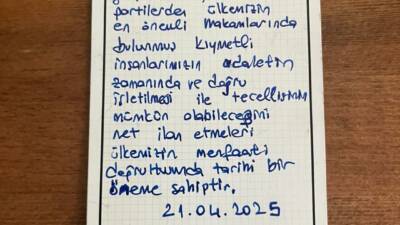 partilerden ülkemizin
en önemli makamlarında
bulunmuş kıymetli
insanlarımızın adaletin
zamanında ve doğru
işletilmesi ile tecellisinin
mümkün olabileceğini
net ilan etmeleri
ülkemizin menfaati
doğrultusunda tarihi bir
öneme sahiptir.
21.04.2025